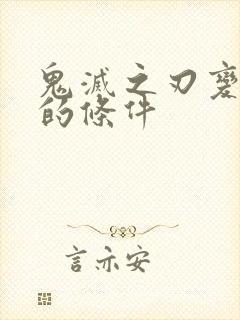 鬼滅之刃變
的條件
言亦安